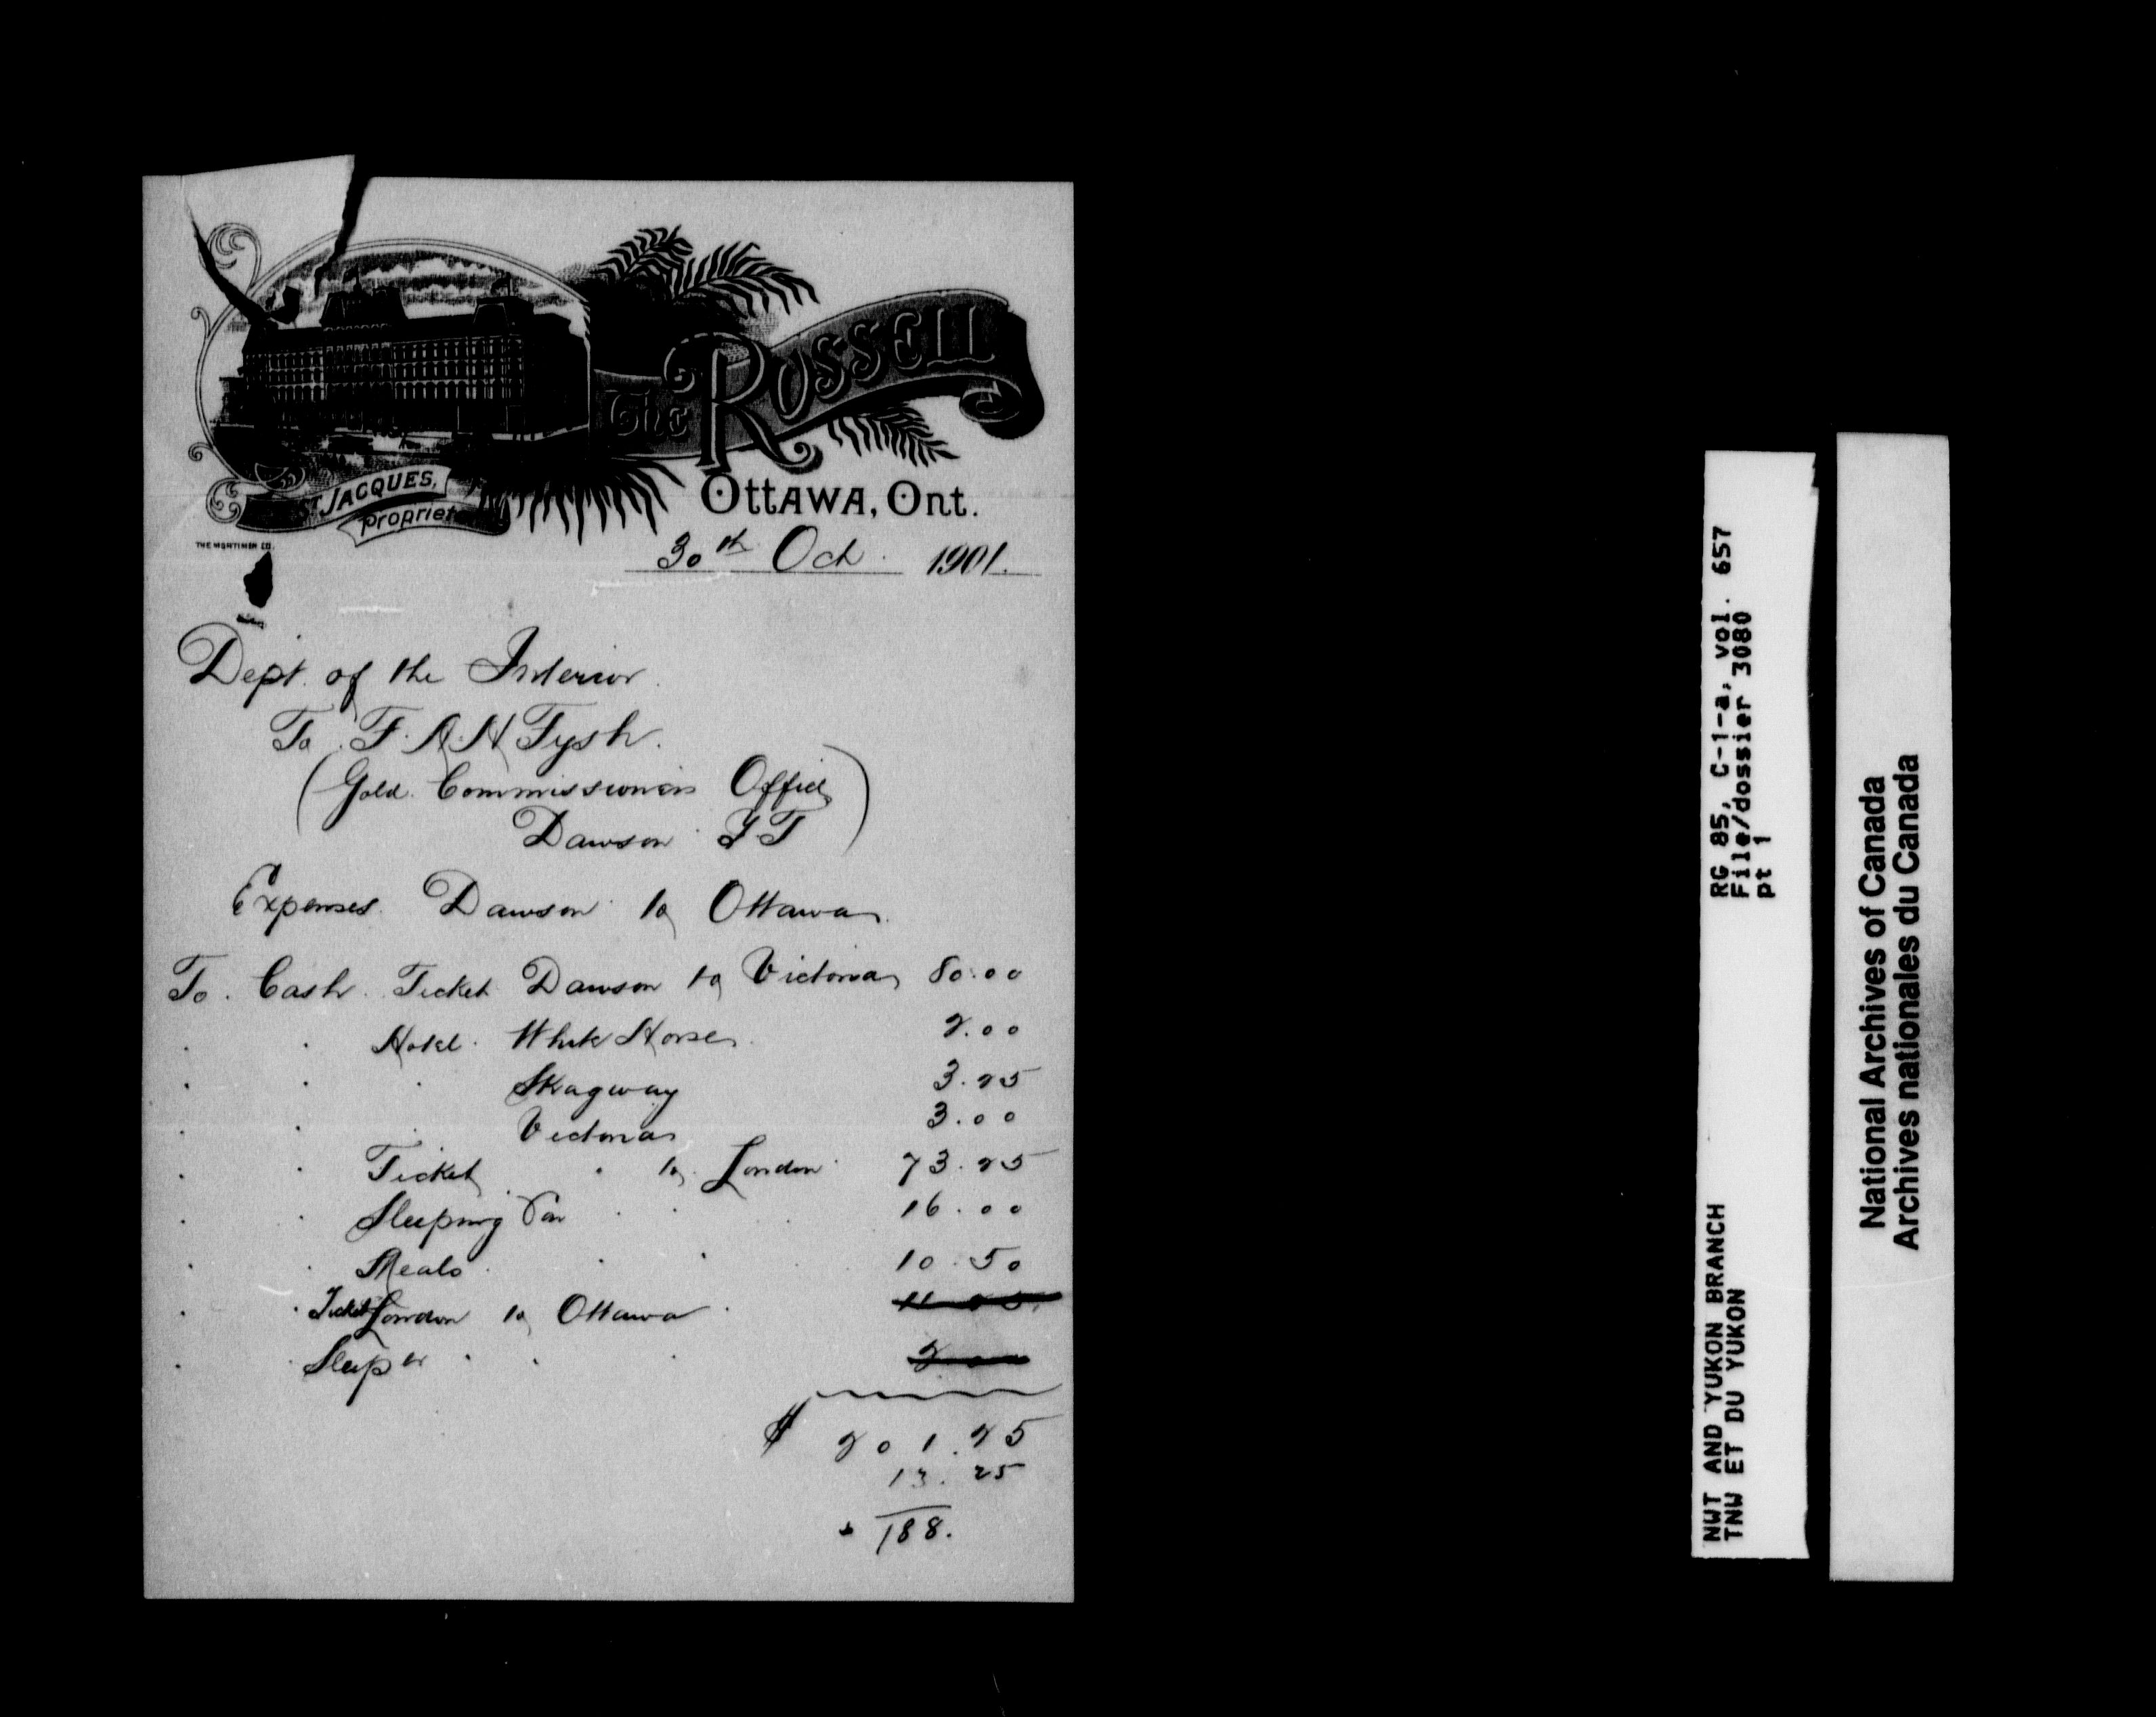 The Russell
St Jacques,
Propriet
Ottawa, Ont.
THE MORTIMER CO.
30th Oct. 1901.
Dept. of the Interior.
To F. A. H Fysh.
(Gold Commissioners Office
Dawson Y.T)
Expenses Dawson to Ottawa.
To Cash Ticket Dawson to Victoria 80.00
" " Hotel White Horse 2.00
" " " Skagway 3.25
" " " Victoria 3.00
" " Ticket " to London 73.25
" " Sleeping Car " " " 16.00
" " Meals " " " 10.50
" " Ticket London to Ottawa 11 25
" " Sleeper " " " 2
$ 201.25
13.25
188.
RG 85, C-1-a, vol. 657
File/dossier 3080
pt 1
NWT AND YUKON BRANCH
TNW ET DU YUKON
National Archives of Canada
Archives nationales du Canada